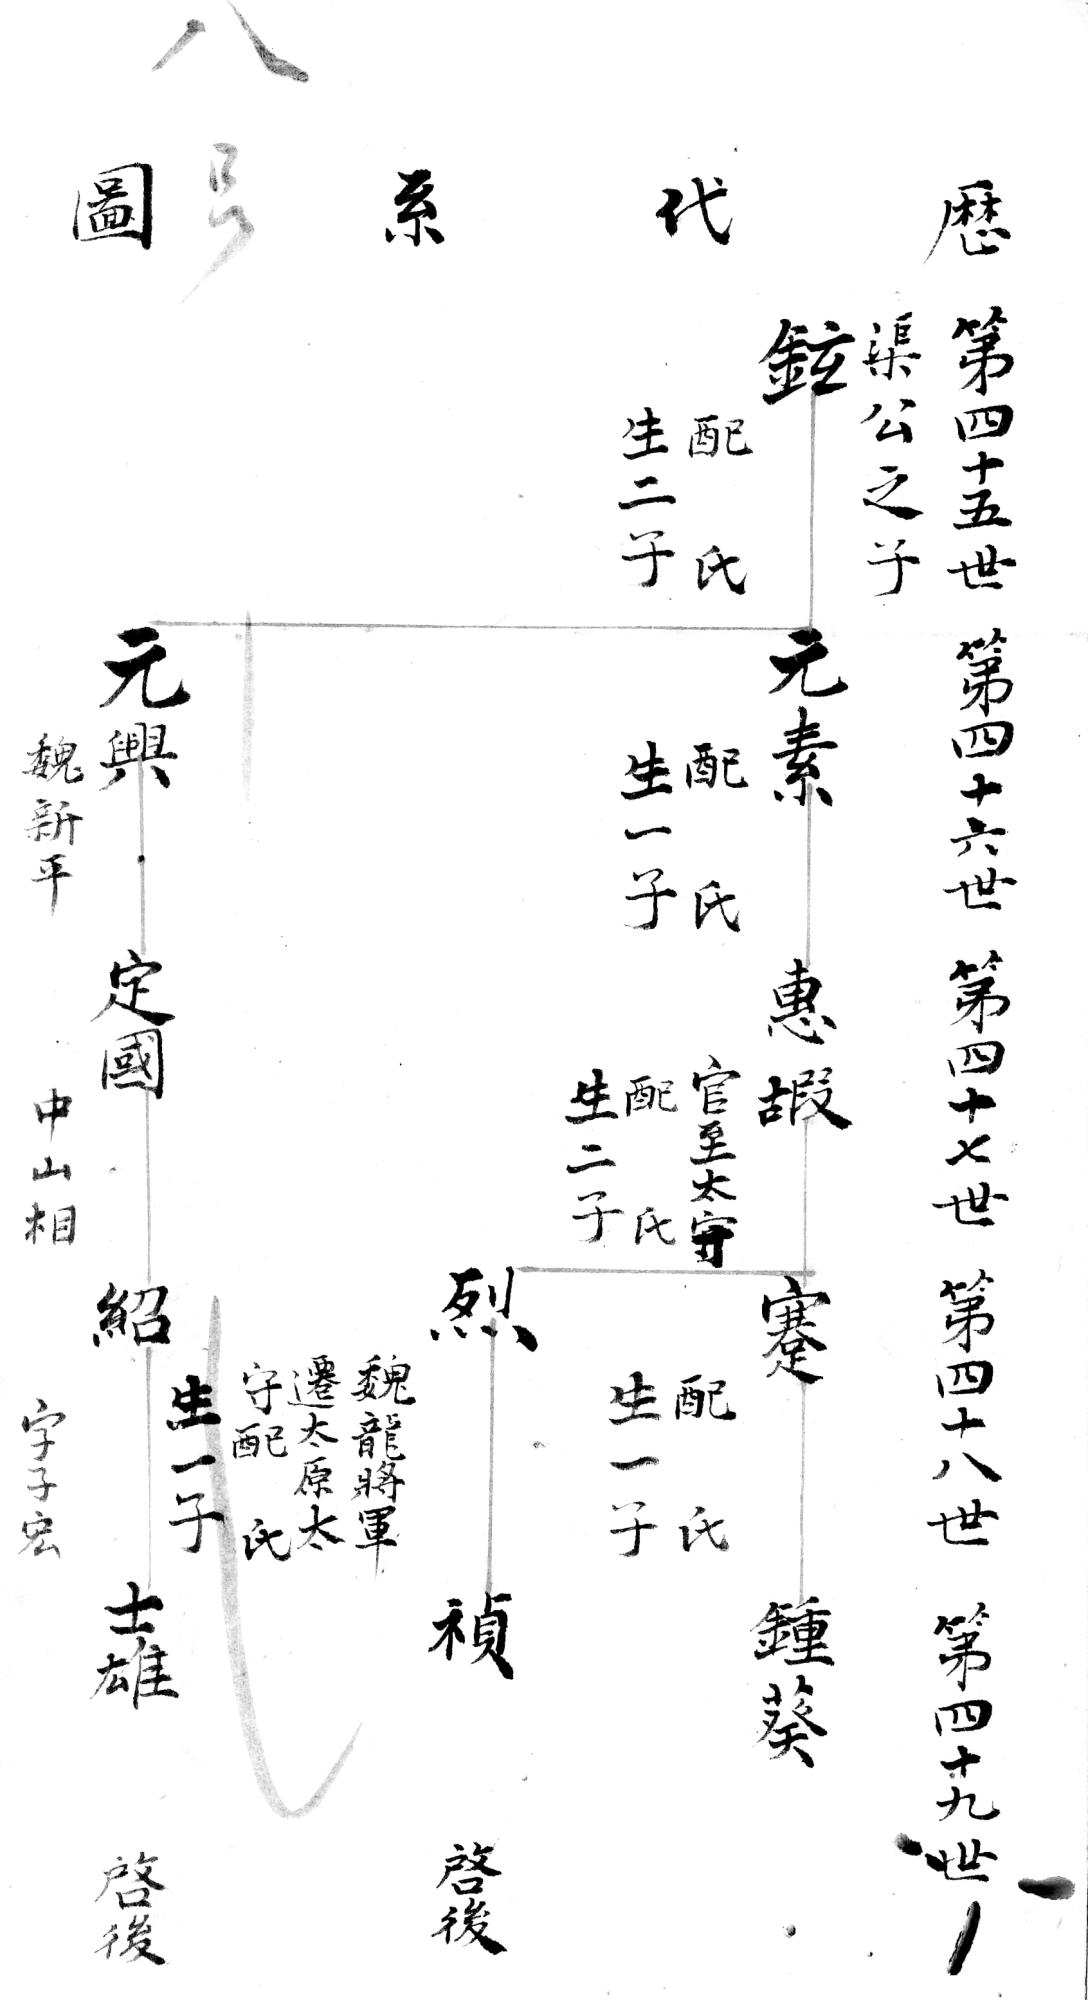 八
歷代系圖
第四十五世
渠公之子
鉉
配 氏
生二子
第四十六世
元素
配 氏
生一子
元興
魏新平
第四十七世
惠嘏
官至太守
配 氏
生二子
定國
中山相
第四十八世
蹇
配 氏
生一子
烈
魏龍將軍
遷太原太
守配 氏
生一子
紹
字子宏
第四十九世
鍾葵
禎
啓後
士雄
啓後